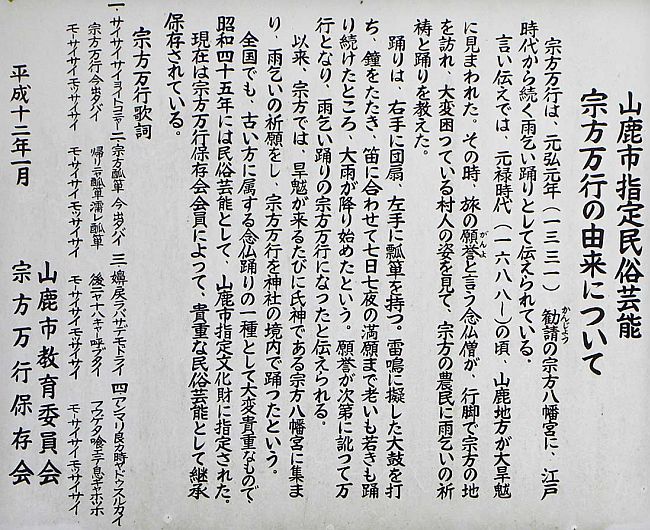 山鹿市指定民俗芸能
宗方万行の由来について
宗方万行は、元弘元年（一三三一）勧請の宗方八幡宮に、江戸
かんじょう
時代から続く雨乞い踊りとして伝えられている。
言い伝えでは、元禄時代（一六八八〜）の頃、山鹿地方が大旱魃
に見まわれた。その時、旅の願誉と言う念仏僧が、行脚で宗方の地
がんよ
を訪れ、大変困っている村人の姿を見て、宗方の農民に雨乞いの祈
祷と踊りを教えた。
踊りは、右手に団扇、左手に瓢箪を持つ。雷鳴に擬した大鼓を打
ち、鐘をたたき、笛に合わせて七日七夜の満願まで老いも若きも踊
り続けたところ、大雨が降り始めたという。願誉が次第に訛って万
行となり、雨乞い踊りの宗方万行になったと伝えられる。
以来、宗方では、旱魃が来るたびに氏神である宗方八幡宮に集ま
り、雨乞いの祈願をし、宗方万行を神社の境内で踊ったという。
全国でも、古い方に属する念仏踊りの一種として大変貴重なもので、
昭和四十五年には民俗芸能として、山鹿市指定文化財に指定された。
現在は宗方万行保存会会員によって、貴重な民俗芸能として継承
保存されている。
宗方万行歌詞
一 サイサイサイヨイトコニャー 二 宗方瓢箪 今出バイ 三 嬶戻ラバサデモドライ 四 アンマリ良カ時ャドウスルカイ
宗方万行今出バイ 帰リニャ瓢箪濡レ瓢箪 後ニャ十八キャー呼ブタイ フウケタ喰エテ息ャホッホ
モーサイサイモッサイサイ モーサイサイモッサイサイ モーサイサイモサイサイ モーサイサイモッサイサイ
平成十二年一月
山鹿市教育委員会
宗方万行保存会